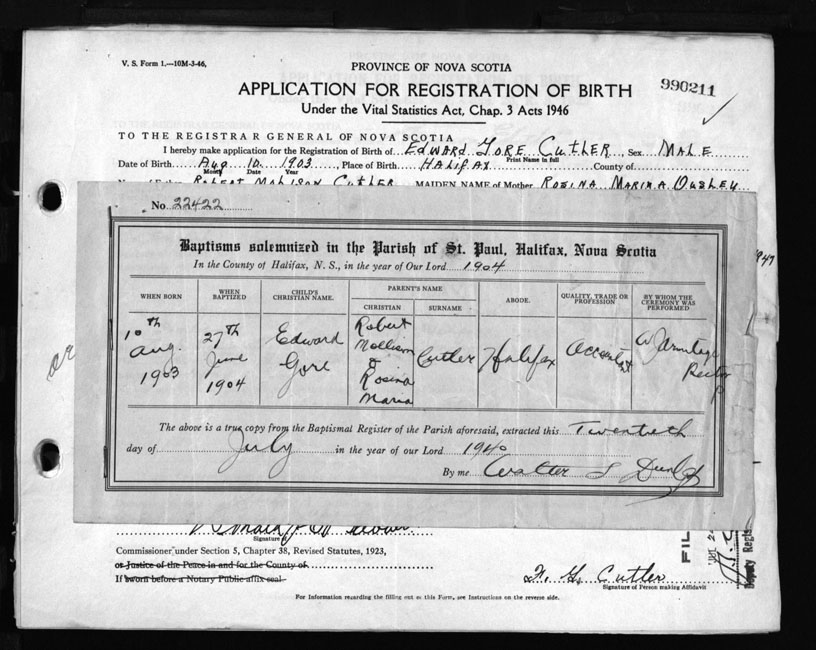 V. S. Form 1.—10M-3-46,
PROVINCE OF NOVA SCOTIA
APPLICATION FOR REGISTRATION OF BIRTH
990211
Under the Vital Statistics Act, Chap. 3 Acts 1946
TO THE REGISTRAR GENERAL OF NOVA SCOTIA
I hereby make application for the Registration of Birth of EDWARD GORE CUTLER, Sex MALE
Print Name in full
Date of Birth Aug 10 1903, Place of Birth HALIFAX County of
Month Date Year
ROBERT CUTLER MAIDEN NAME of Mother ROSINA MARIA OUSLEY
No. 22422
Baptisms solemnized in the Parish of St. Paul, Halifax, Nova Scotia
In the County of Halifax, N. S., in the year of Our Lord 1904
WHEN BORN
WHEN BAPTIZED
CHILD'S CHRISTIAN NAME.
PARENT'S NAME
CHRISTIAN
SURNAME
ABODE.
QUALITY, TRADE OR PROFESSION
BY WHOM THE CEREMONY WAS PERFORMED
10th Aug. 1903
27th June 1904
Edward Gore
Robert Mollison & Rosina Maria
Cutler
Halifax
W J Armitage Rector
The above is a true copy from the Baptismal Register of the Parish aforesaid, extracted this Twentieth
day of July in the year of our Lord 1940
By me
or
Signature of
Commissioner under Section 5, Chapter 38, Revised Statutes, 1923,
or Justice of the Peace in and for the County of
If sworn before a Notary Public affix seal
Cutler
Signature of Person making Affidavit
FIL
Deputy Regis
For Information regarding the filling out of this Form, see Instructions on the reverse side.